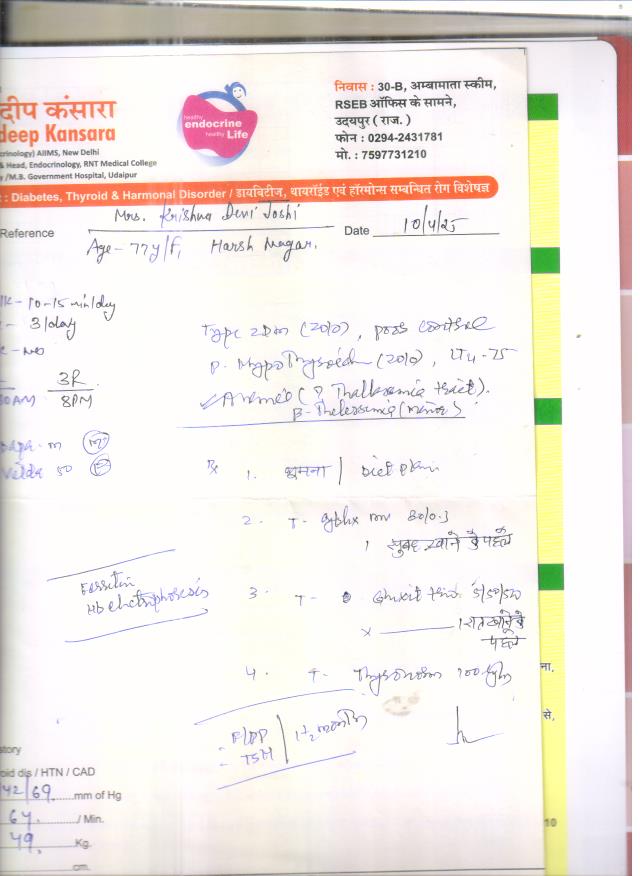 दीप कंसारा
deep Kansara
crinology) AIIMS, New Delhi
& Head, Endocrinology, RNT Medical College
/M.B. Government Hospital, Udaipur
healthy
endocrine
healthy Life
निवास : 30-B, अम्बामाता स्कीम,
RSEB ऑफिस के सामने,
उदयपुर ( राज. )
फोन : 0294-2431781
मो. : 7597731210
: Diabetes, Thyroid & Harmonal Disorder / डायबिटीज, थायरॉइड एवं हॉरमोन्स सम्बन्धित रोग विशेषज्ञ
Reference Mrs. Krishna Devi Joshi Date 10/4/25
Age - 77y/F, Harsh Nagar.
10-15 min/day
3/day
3R
8PM
Type 2DM (2010), poor control
P. Hypothyroid (2010), LT4-75
Anemia (? Thallesemia trait).
B-Thelessimia (minor)
Rx 1. घूमना / Diet plan
2. T- 80/0.3
1 सुबह खाने से पहले
3. T- 5/50/500
x 1 रात खाने से
पहले
Ferritin
Hb electrophoresis
4. T- Thyronorm 100
F/PP
- TSH
ना,
से,
story
oid dis / HTN / CAD
42/69 mm of Hg
64 / Min.
49 Kg.
cm.
10